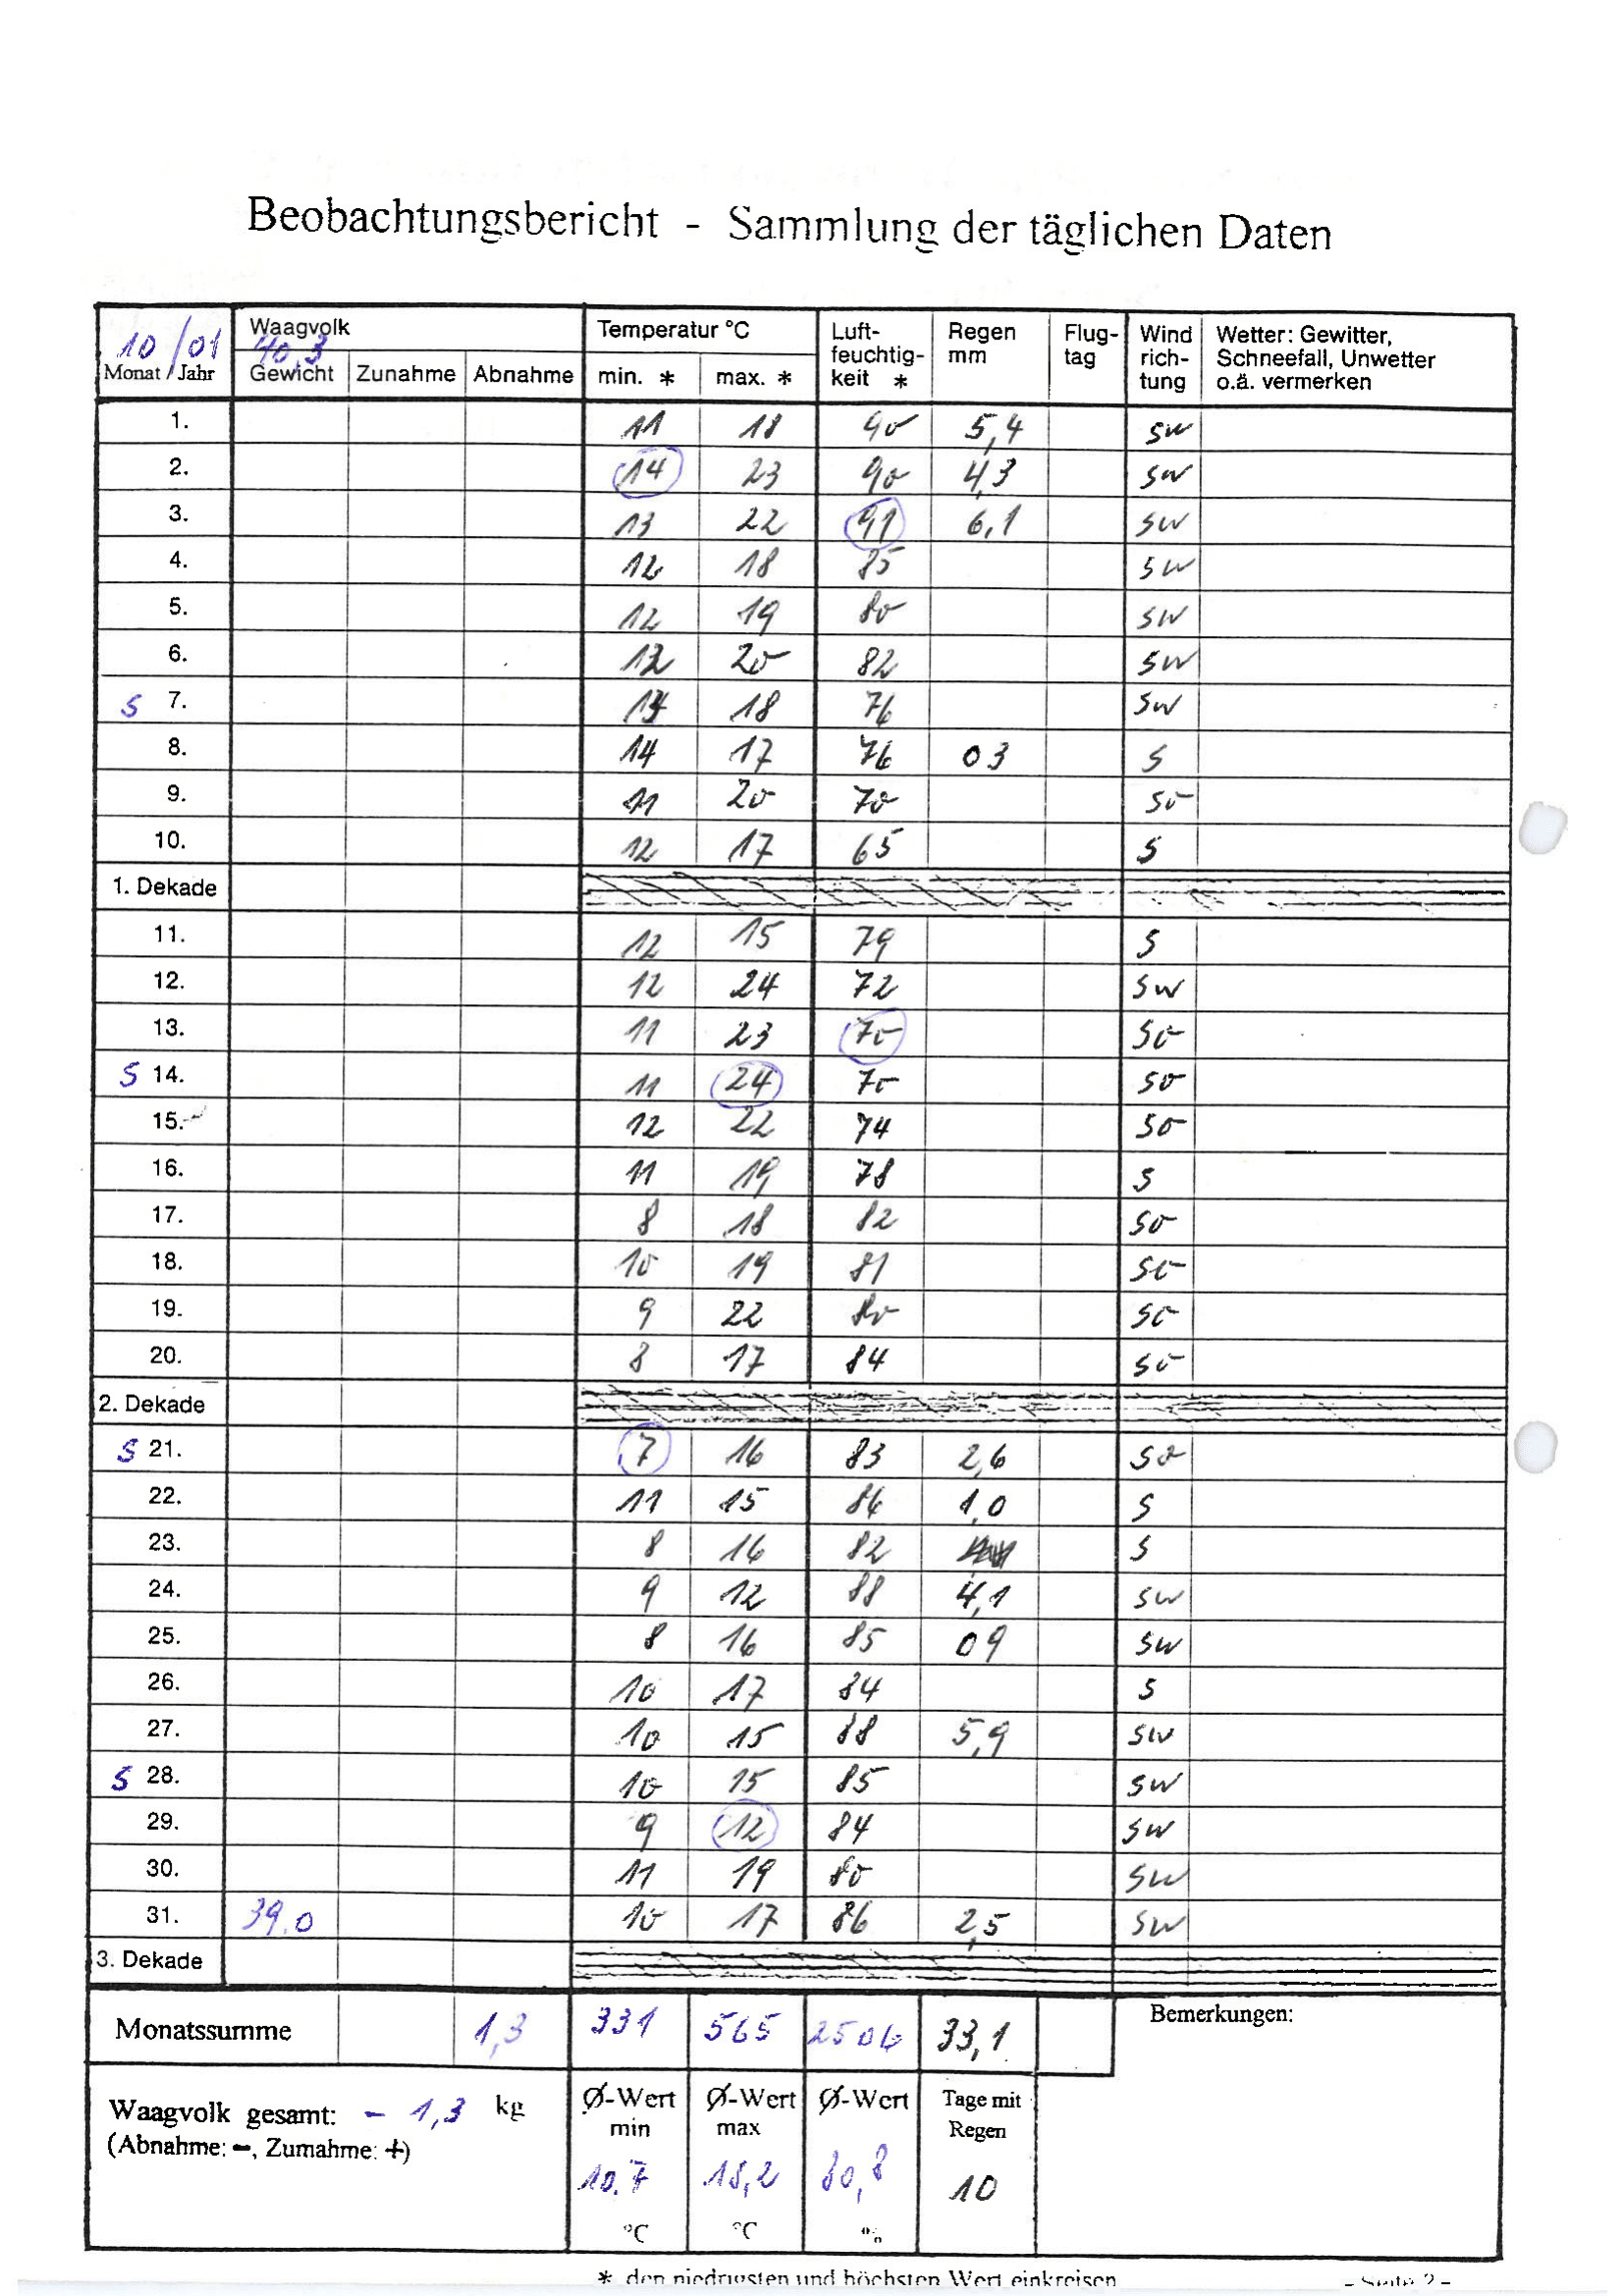 Beobachtungsbericht - Sammlung der täglichen Daten
10/01 Monat / Jahr Waagvolk 40,3 Gewicht Zunahme Abnahme Temperatur °C min. * max. * Luft-feuchtig-keit * Regen mm Flug-tag Wind rich-tung Wetter: Gewitter, Schneefall, Unwetter o.ä. vermerken
1. 11 18 90 5,4 SW
2. 14 23 90 4,3 SW
3. 13 22 91 6,1 SW
4. 12 18 85 SW
5. 12 19 80 SW
6. 12 20 82 SW
S 7. 18 76 SW
8. 14 17 76 03 S
9. 11 20 70 SO
10. 12 17 65 S
1. Dekade
11. 12 15 79 S
12. 12 24 72 SW
13. 11 23 70 SO
S 14. 11 24 70 SO
15. 12 22 74 SO
16. 11 19 78 S
17. 8 18 82 SO
18. 10 19 81 SO
19. 9 22 80 SO
20. 8 17 84 SO
2. Dekade
S 21. 7 16 83 2,6 SO
22. 11 15 86 1,0 S
23. 8 16 82 S
24. 9 12 88 4,1 SW
25. 8 16 85 09 SW
26. 10 17 84 S
27. 10 15 88 5,9 SW
S 28. 10 15 85 SW
29. 9 12 84 SW
30. 11 19 80 SW
31. 39.0 10 17 86 2,5 SW
3. Dekade
Monatssumme 1,3 331 565 2506 33,1 Bemerkungen:
Waagvolk gesamt: - 1,3 kg
(Abnahme: -, Zumahme: +)
Ø-Wert min 10.7 °C
Ø-Wert max 18,2 °C
Ø-Wert 80,8 %
Tage mit Regen 10
* den niedrigsten und höchsten Wert einkreisen - Seite 2 -